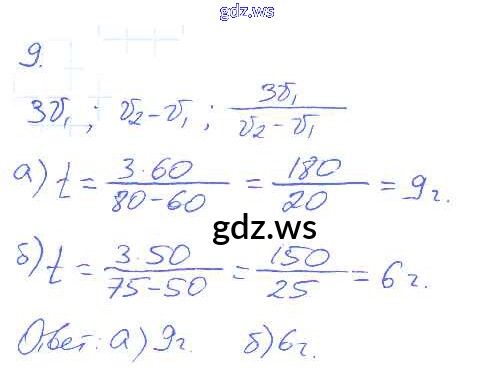 gdz.ws
9.
3v₁ ; v₂-v₁ ; 3v₁/(v₂-v₁)
а) t = 3·60/(80-60) = 180/20 = 9 ч.
gdz.ws
б) t = 3·50/(75-50) = 150/25 = 6 ч.
Ответ: а) 9 ч. б) 6 ч.